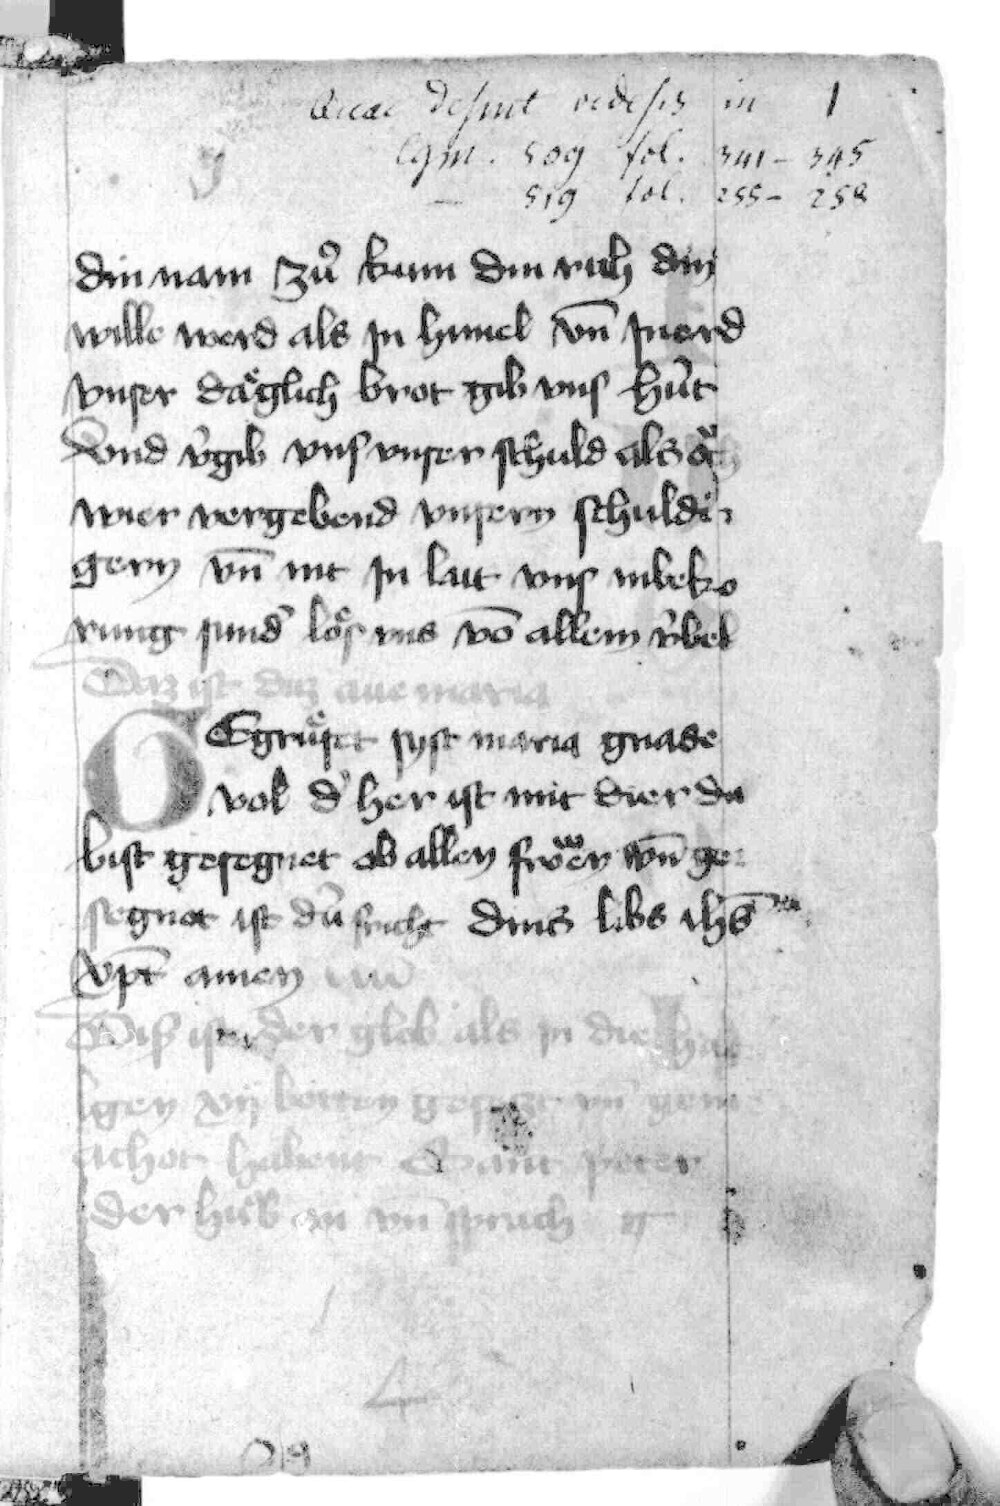 Quae desunt videsis in 1
Cgm. 509 fol. 341 – 345
— 519 fol. 255 – 258
din nam zů kum din rich din
wille werd als jn himel vn̄ jn erd
vnser dåglich brot gib vns hu̍t
Vnd v̾gib vns vnser schuld als ǒch
wier vergebend vnsern schuldi
gern vn̄ nit jn lait vns in beko
rung sund̾ lo̊s vns vō allem v̍bel
Daz ist daz aue maria
GEgru̍sset syst maria gnade
vol d̾ her ist mit dier du
bist gesegnet ob allen frowen vn̄ ge
segnet ist du̍ frucht dins libs ihs̄
xp̄t amen
Diss ist der glob als jn die hail
lgen xij botten gesetzt vn̄ gem
achot habent Sant peter
der hu̍b an vn̄ sprach
4